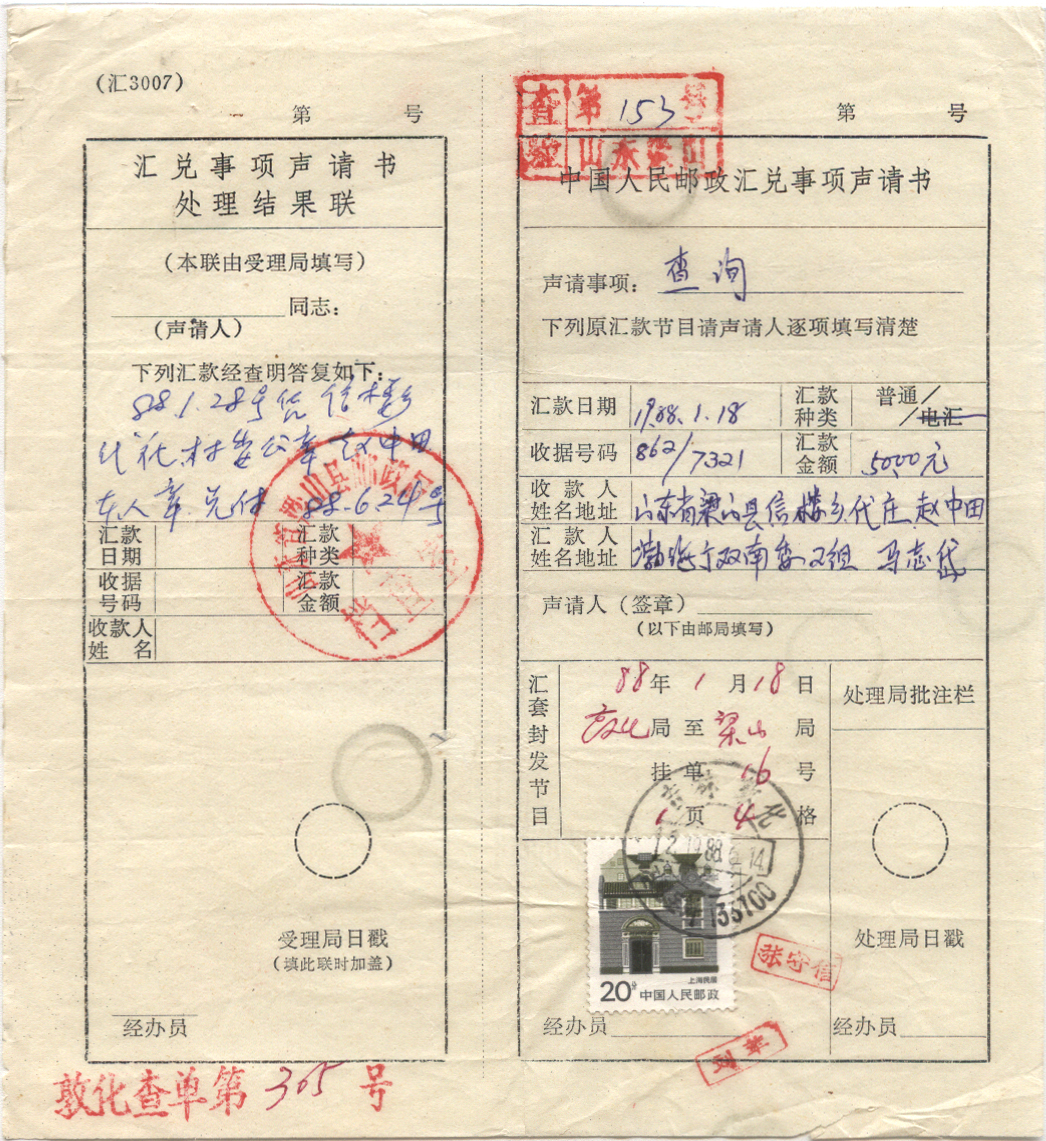 (汇3007)
第 号
汇兑事项声请书
处理结果联
(本联由受理局填写)
同志:
(声请人)
下列汇款经查明答复如下:
88.1.28号凭信楼乡
代庄村委公章赵中田
本人章兑付 88.6.24号
汇款日期
汇款种类
收据号码
汇款金额
收款人姓名
受理局日戳
(填此联时加盖)
经办员
敦化查单第305号
查验
第153号
山东梁山
第 号
中国人民邮政汇兑事项声请书
声请事项: 查询
下列原汇款节目请声请人逐项填写清楚
汇款日期 1988.1.18
汇款种类 普通/电汇
收据号码 862/7321
汇款金额 5000元
收款人姓名地址 山东省梁山县信楼乡代庄赵中田
汇款人姓名地址 渤海 南委 组 马志岱
声请人(签章)
(以下由邮局填写)
汇套封发节目
88年1月18日
敦化局至梁山局
挂单16号
1页4格
处理局批注栏
吉林敦化
133700
上海民居
20分 中国人民邮政
张守信
处理局日戳
经办员
经办员